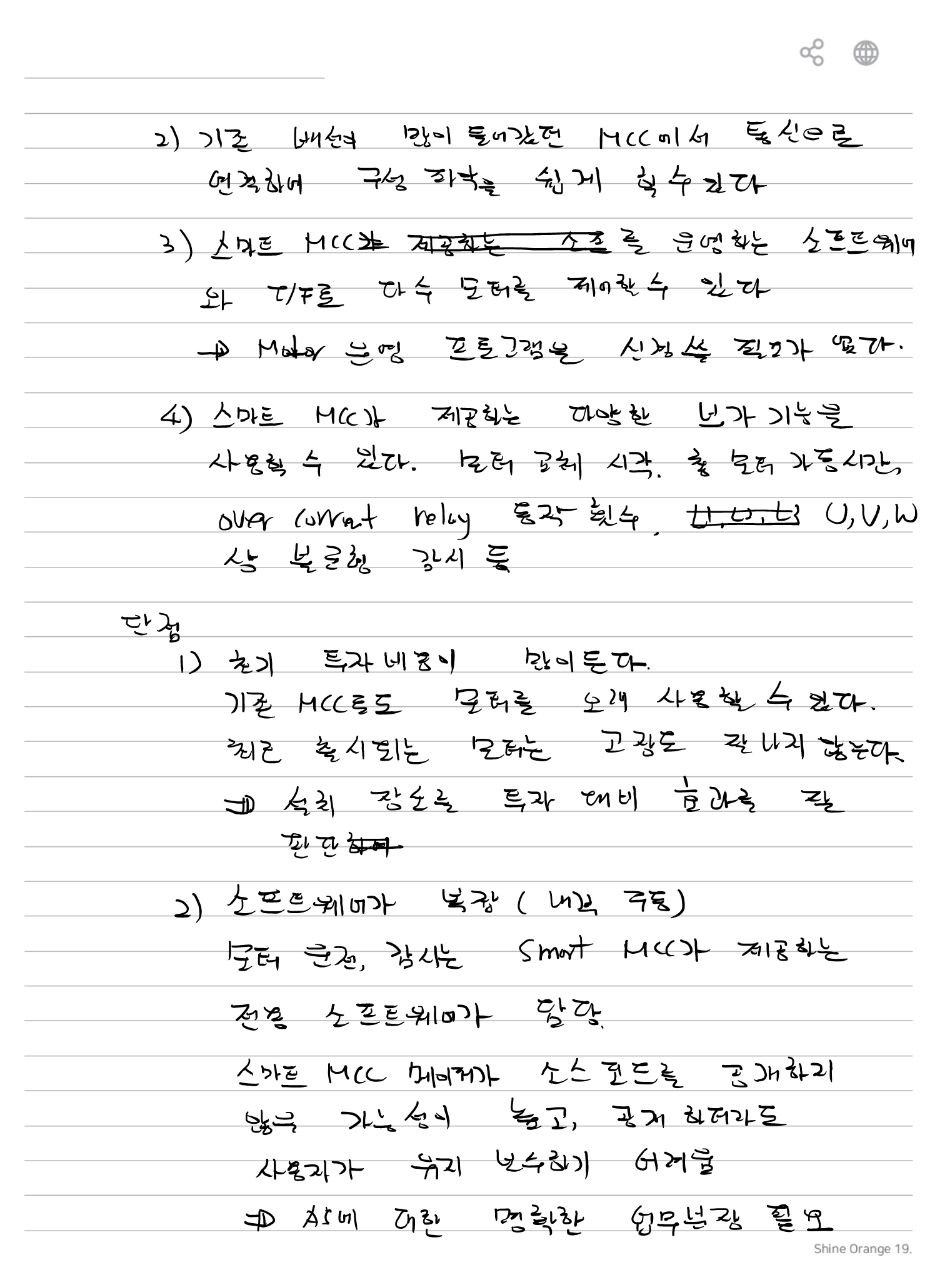 2) 기존 배선이 많이 들어갔던 MCC에서 통신으로
연결하여 구성 파악을 쉽게 할 수 있다
3) 스마트 MCC 제공하는 소프 를 운영하는 소프트웨어
와 T/F로 다수 모터를 제어할 수 있다
⇒ Motor 운영 프로그램을 신경 쓸 필요가 없다.
4) 스마트 MCC가 제공하는 다양한 부가 기능을
사용할 수 있다. 모터 교체 시각, 총 모터 가동시간,
over current relay 동작 횟수, U, V, W
상 불균형 감시 등
단점
1) 초기 투자 비용이 많이 든다.
기존 MCC로도 모터를 오래 사용할 수 있다.
최근 출시되는 모터는 고장도 잘 나지 않는다.
⇒ 설치 장소를 투자 대비 효과를 잘
판단하여
2) 소프트웨어가 복잡 (내부 구동)
모터 운전, 감시는 Smart MCC가 제공하는
전용 소프트웨어가 담당.
스마트 MCC 메이커가 소스 코드를 공개하지
않을 가능성이 높고, 공개 하더라도
사용자가 유지 보수하기 어려움
⇒ AS에 대한 명확한 업무분장 필요
Shine Orange 19.